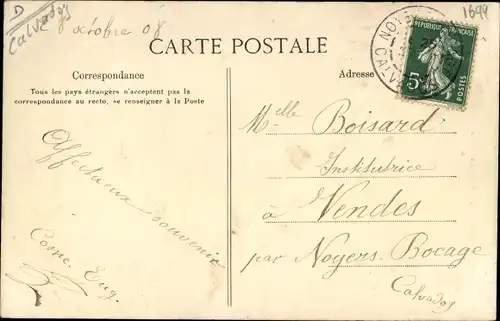 D
Calvados
8 octobre 08
1699
CARTE POSTALE
Correspondance
Adresse
Tous les pays étrangers n'acceptent pas la
correspondance au recto, se renseigner à la Poste
REPUBLIQUE FRANÇAISE
5
POSTES
Affectueux souvenir
Cosne. Eug.
Melle Boisard
Institutrice
à Vendes
par Noyers-Bocage
Calvados